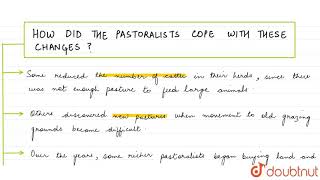 HOW DID THE PASTORALISTS COPE WITH THESE
CHANGES ?
Some reduced the number of cattle in their herds, since
there was not enough pasture to feed large animals
Others discovered new pastures when movement to old grazing
grounds became difficult.
Over the years, some richer pastoralists began buying land and
doubtnut